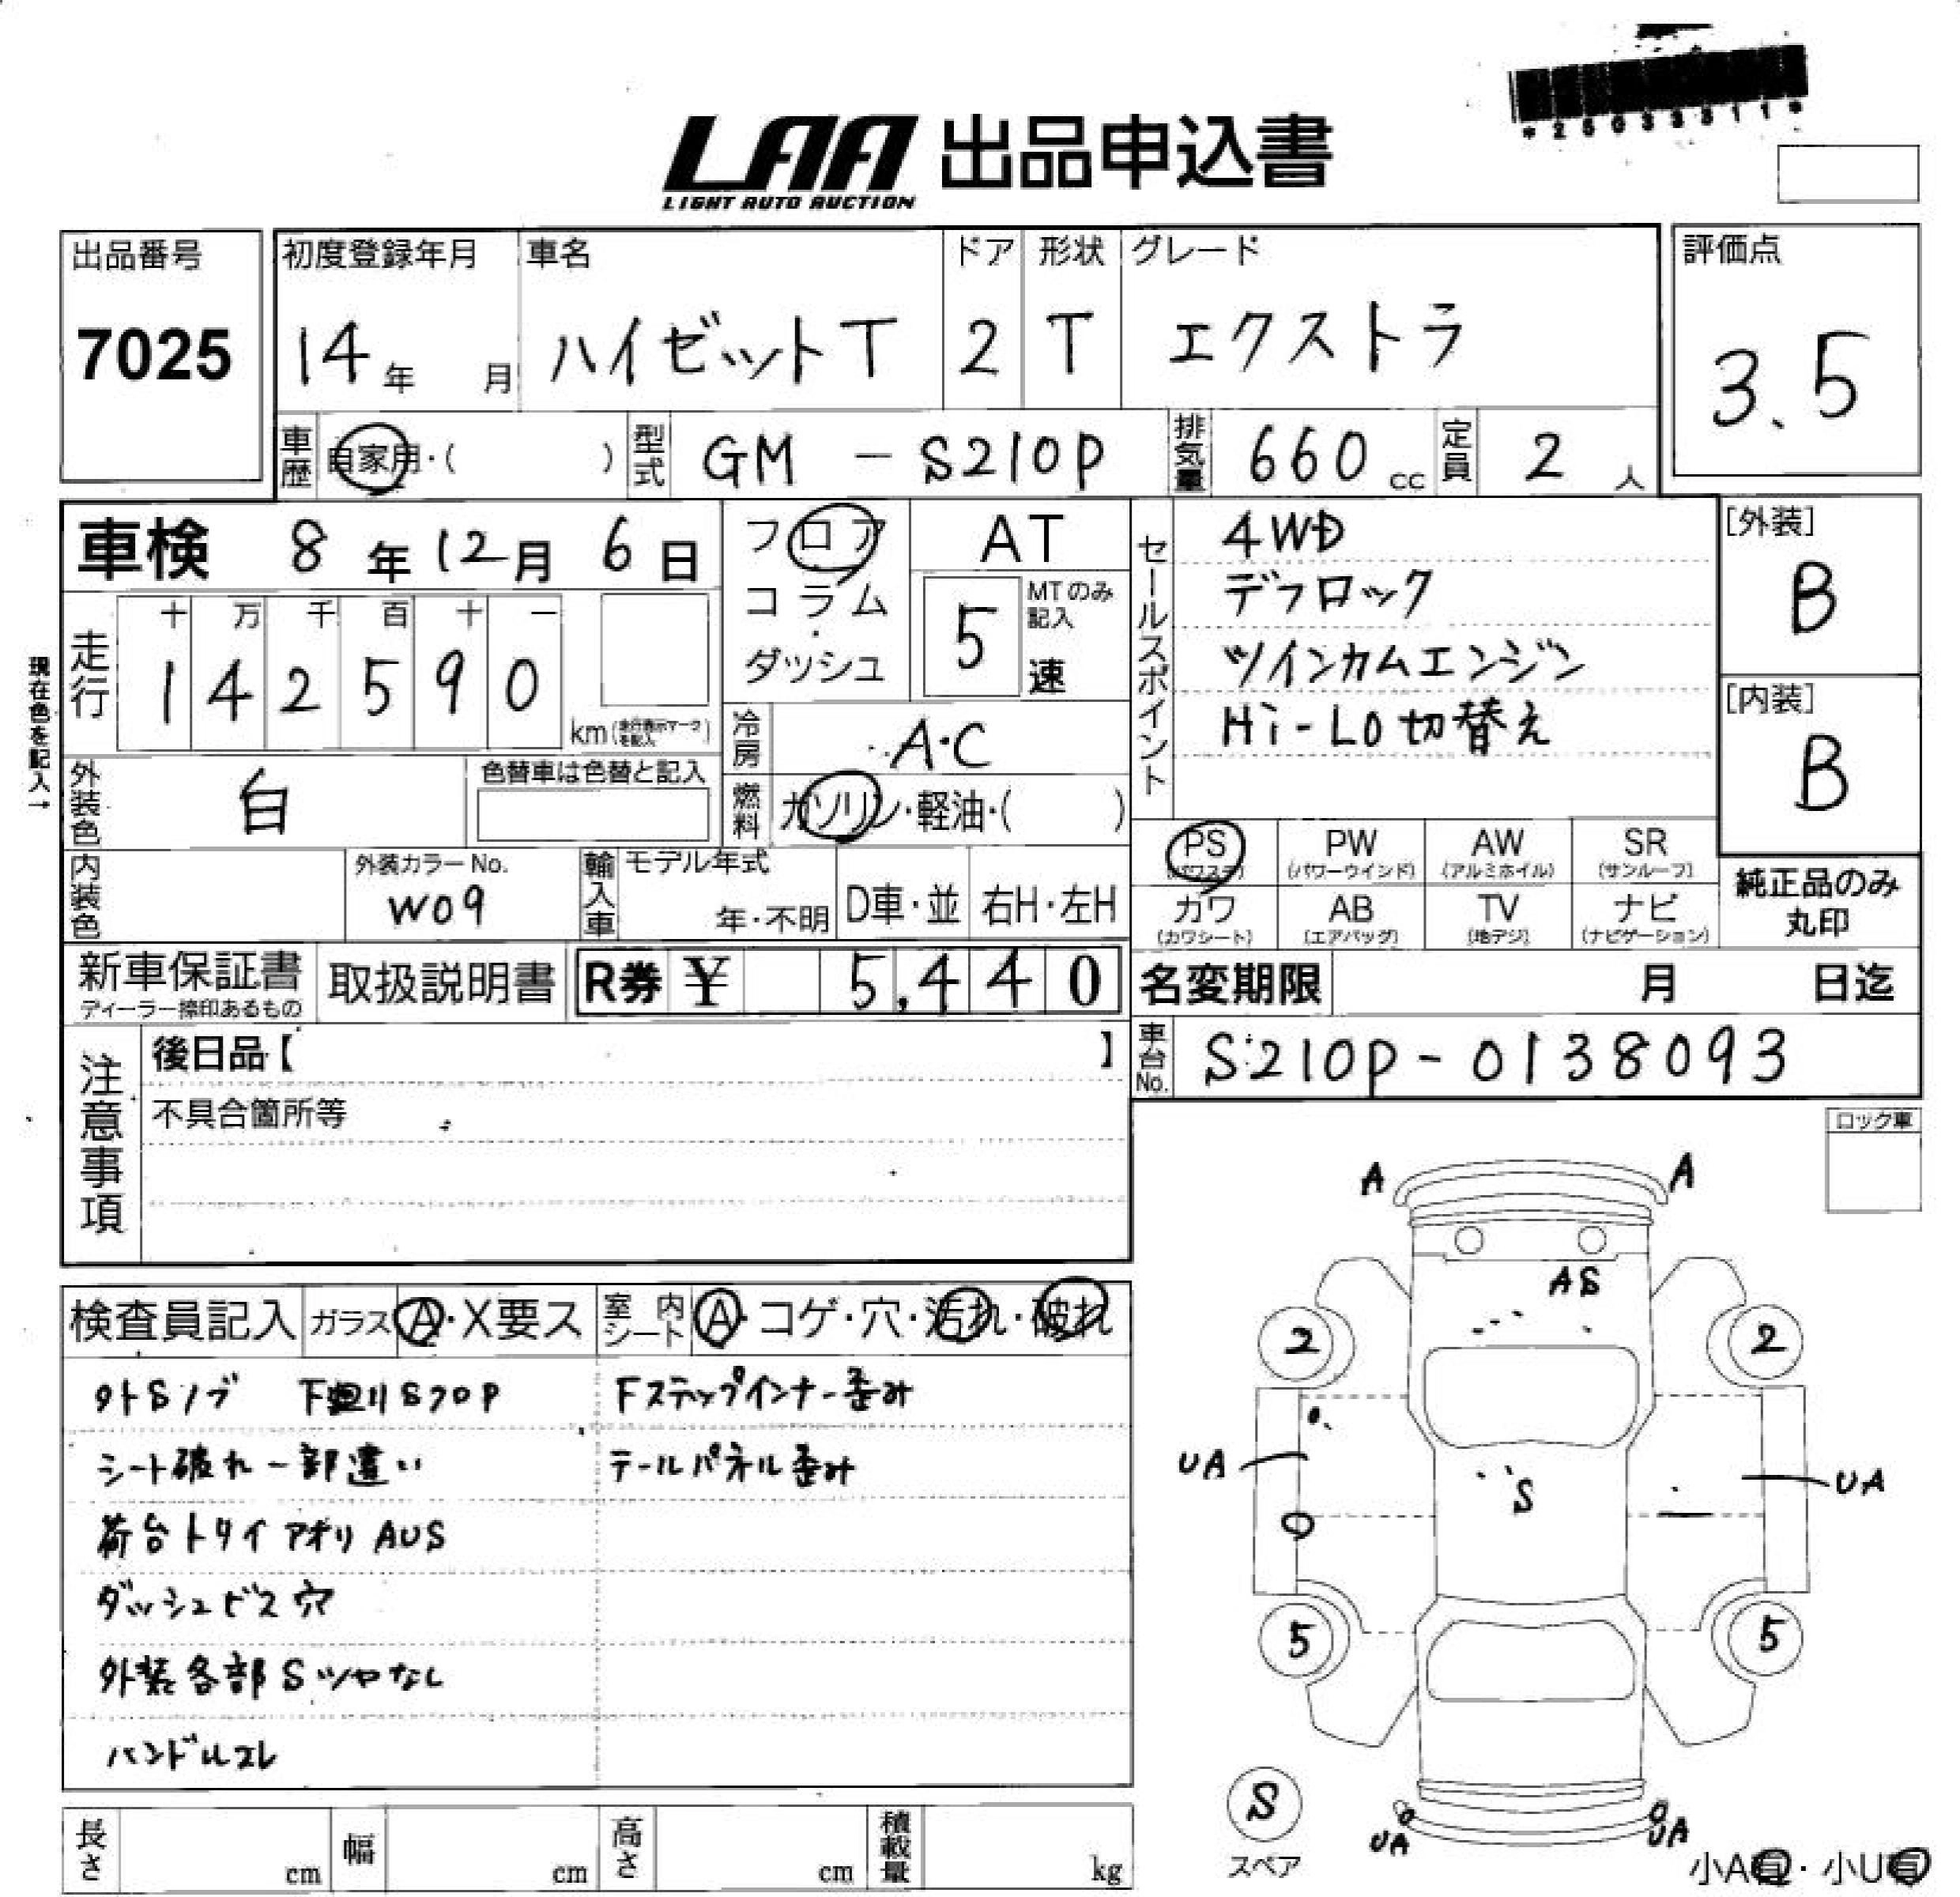 *25033311*
LAA 出品申込書
LIGHT AUTO AUCTION
出品番号
7025
初度登録年月
14年 月
車名
ハイゼットT
ドア
2
形状
T
グレード
エクストラ
評価点
3.5
車歴 自家用・( )
型式 GM - S210P
排気量 660 cc
定員 2 人
車検 8年12月6日
フロア
コラム
・
ダッシュ
AT
5 MTのみ記入 速
セールスポイント
4WD
デフロック
ツインカムエンジン
Hi-Lo切替え
[外装]
B
[内装]
B
現在色を記入→
走行
十 万 千 百 十 一
1 4 2 5 9 0
km(走行表示マークを記入)
冷房 A・C
燃料 ガソリン・軽油・( )
外装色 白
色替車は色替と記入
内装色
外装カラーNo.
W09
輸入車
モデル年式
年・不明
D車・並
右H・左H
PS (パワステ)
PW (パワーウインド)
AW (アルミホイル)
SR (サンルーフ)
カワ (カワシート)
AB (エアバッグ)
TV (地デジ)
ナビ (ナビゲーション)
純正品のみ
丸印
新車保証書
ディーラー捺印あるもの
取扱説明書
R券 ¥ 5,440
名変期限 月 日迄
車台No. S210P-0138093
注意事項
後日品【 】
不具合箇所等
ロック車
検査員記入
ガラス A・X要ス
室内シート A・コゲ・穴・汚れ・破れ
外Sノブ 下廻りSアロP
シート破れ一部遣い
荷台トリイアオリAUS
ダッシュビス穴
外装各部Sツヤなし
ハンドルスレ
Fステップインナー歪み
テールパネル歪み
A A
AS
2 2
UA UA
S
5 5
S
スペア
UA UA
小A有・小U有
長さ cm
幅 cm
高さ cm
積載量 kg